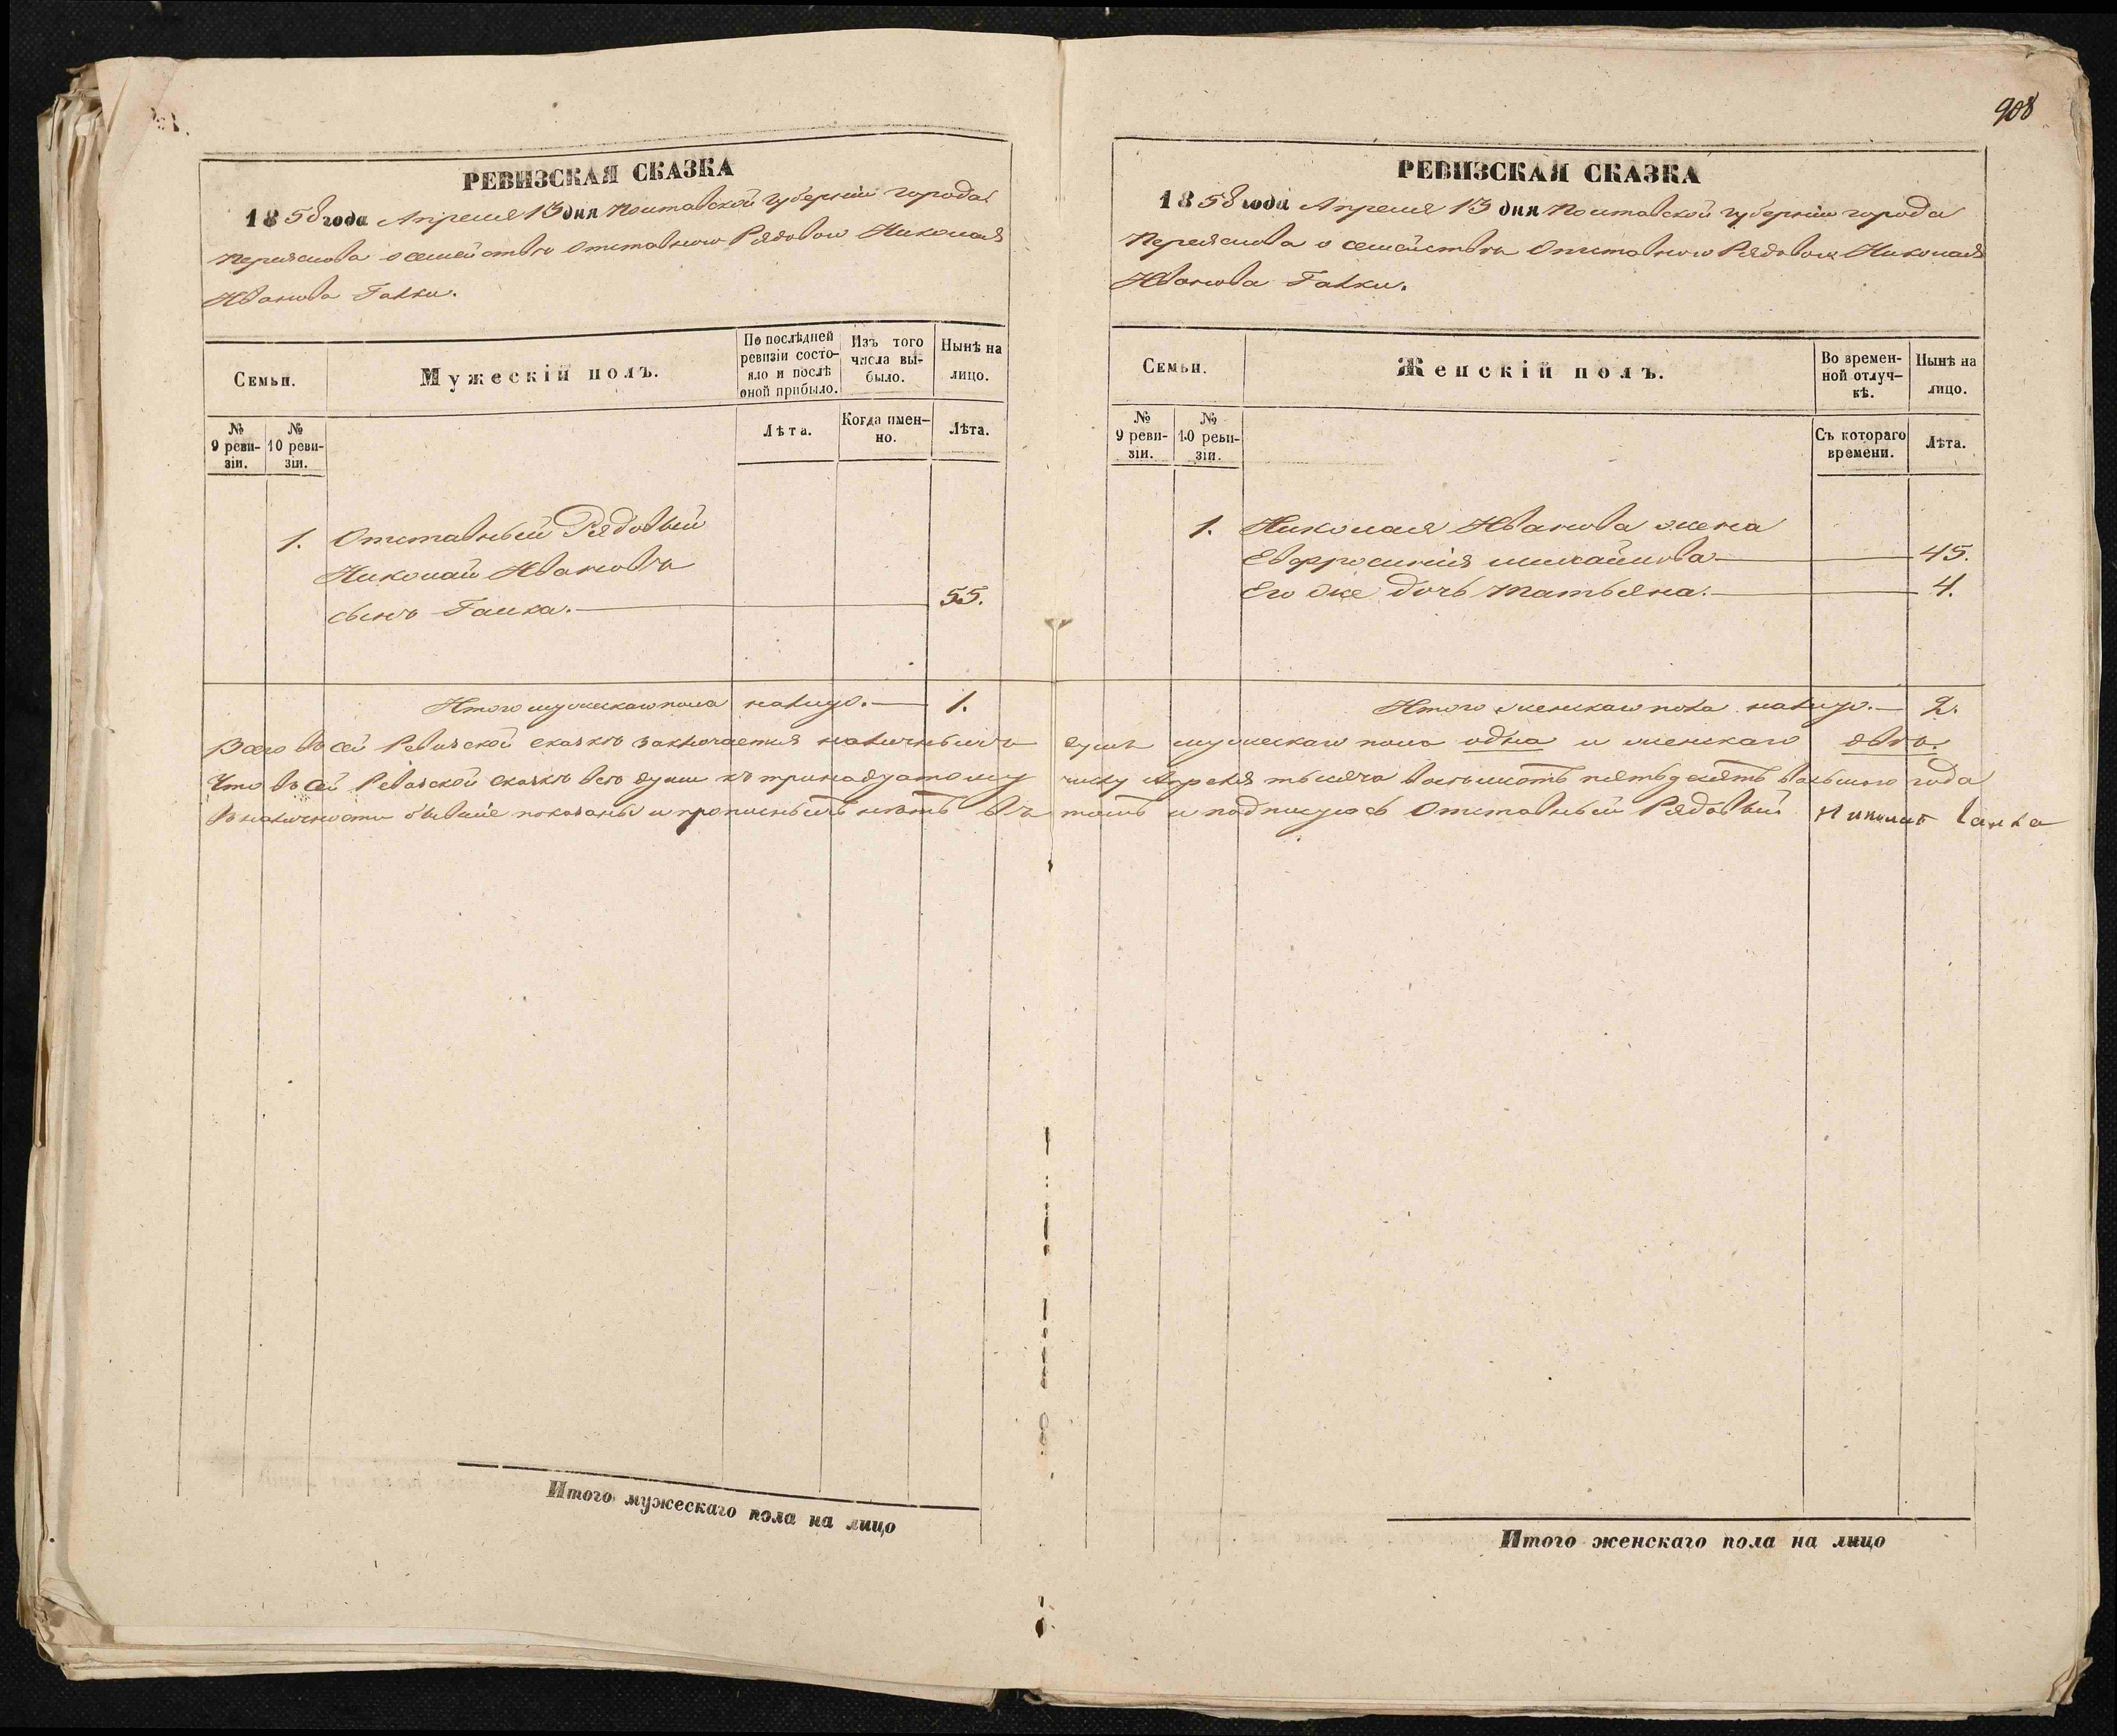 908
РЕВИЗСКАЯ СКАЗКА
1858 года Апреля 13 дня Полтавской губернiи города
Переяслова о семействѣ Отставного Рядового Николая
Иванова Галки.
Семьи.
Мужескiй полъ.
По послѣдней
ревизiи состо-
яло и послѣ
оной прибыло.
Изъ того
числа вы-
было.
Нынѣ на
лицо.
№
9 реви-
зiи.
№
10 реви-
зiи.
Лѣта.
Когда имен-
но.
Лѣта.
1. Отставный Рядовый
Николай Ивановъ
сынъ Галка. 55.
Итого мужескаго пола налицо. 1.
РЕВИЗСКАЯ СКАЗКА
1858 года Апреля 13 дня Полтавской губернiи города
Переяслова о семействѣ Отставного Рядового Николая
Иванова Галки.
Семьи.
Женскiй полъ.
Во времен-
ной отлуч-
кѣ.
Нынѣ на
лицо.
№
9 реви-
зiи.
№
10 реви-
зiи.
Съ котораго
времени.
Лѣта.
1. Николая Иванова жена
Евфросинiя Михайлова 45.
Его же дочь Татьяна. 4.
Итого женскаго пола налицо. 2.
Всего въ сей Ревизской сказкѣ заключается наличныхъ душъ мужескаго пола одна и женскаго двѣ.
Что въ сей Ревизской сказкѣ всѣ души къ тринадцатому числу Апреля тысяча восемьсотъ пятьдесятъ восьмого года
в наличности бывшiе показаны и прописныхъ нѣтъ въ томъ и подписуюсь Отставный Рядовый Николай Галка
Итого мужескаго пола на лицо
Итого женскаго пола на лицо